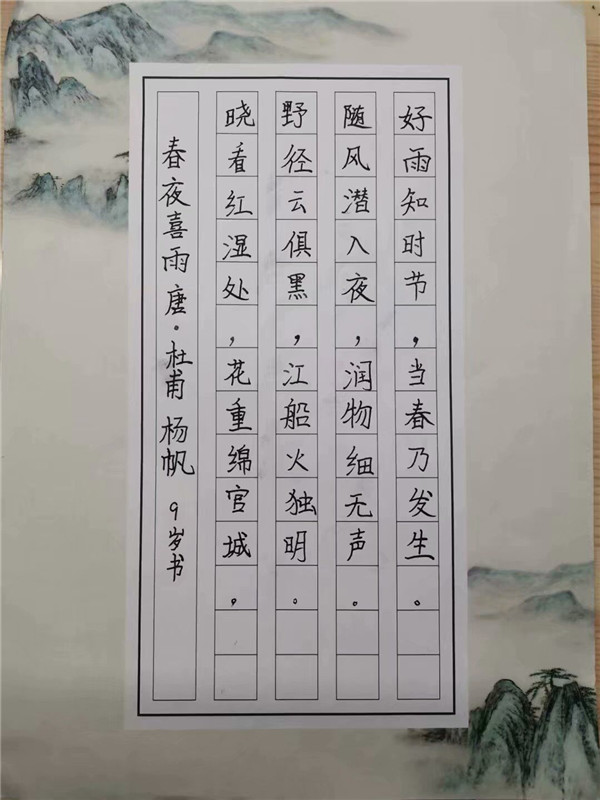 好雨知时节,当春乃发生。
随风潜入夜,润物细无声。
野径云俱黑,江船火独明。
晓看红湿处,花重绵官城。
春夜喜雨唐。杜甫 杨帆 9岁书